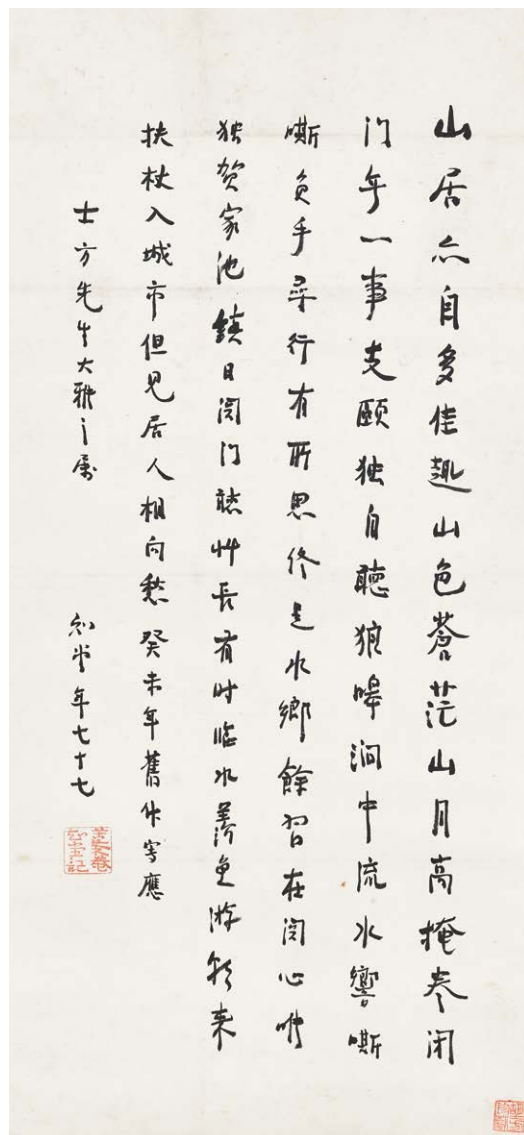 山居亦自多佳趣山色蒼茫山月高掩卷閉
门無一事支頤独自聽狼嗥涧中流水響嘶
嘶負手尋行有所思終是水鄉餘習在関心唯
独賀家池鎮日閉门聽艸長有时臨水羨魚游朝来
扶杖入城市但見居人相向愁癸未年舊作寫應
士方先生大雅之属
知堂年七十七
苦茶庵知堂記